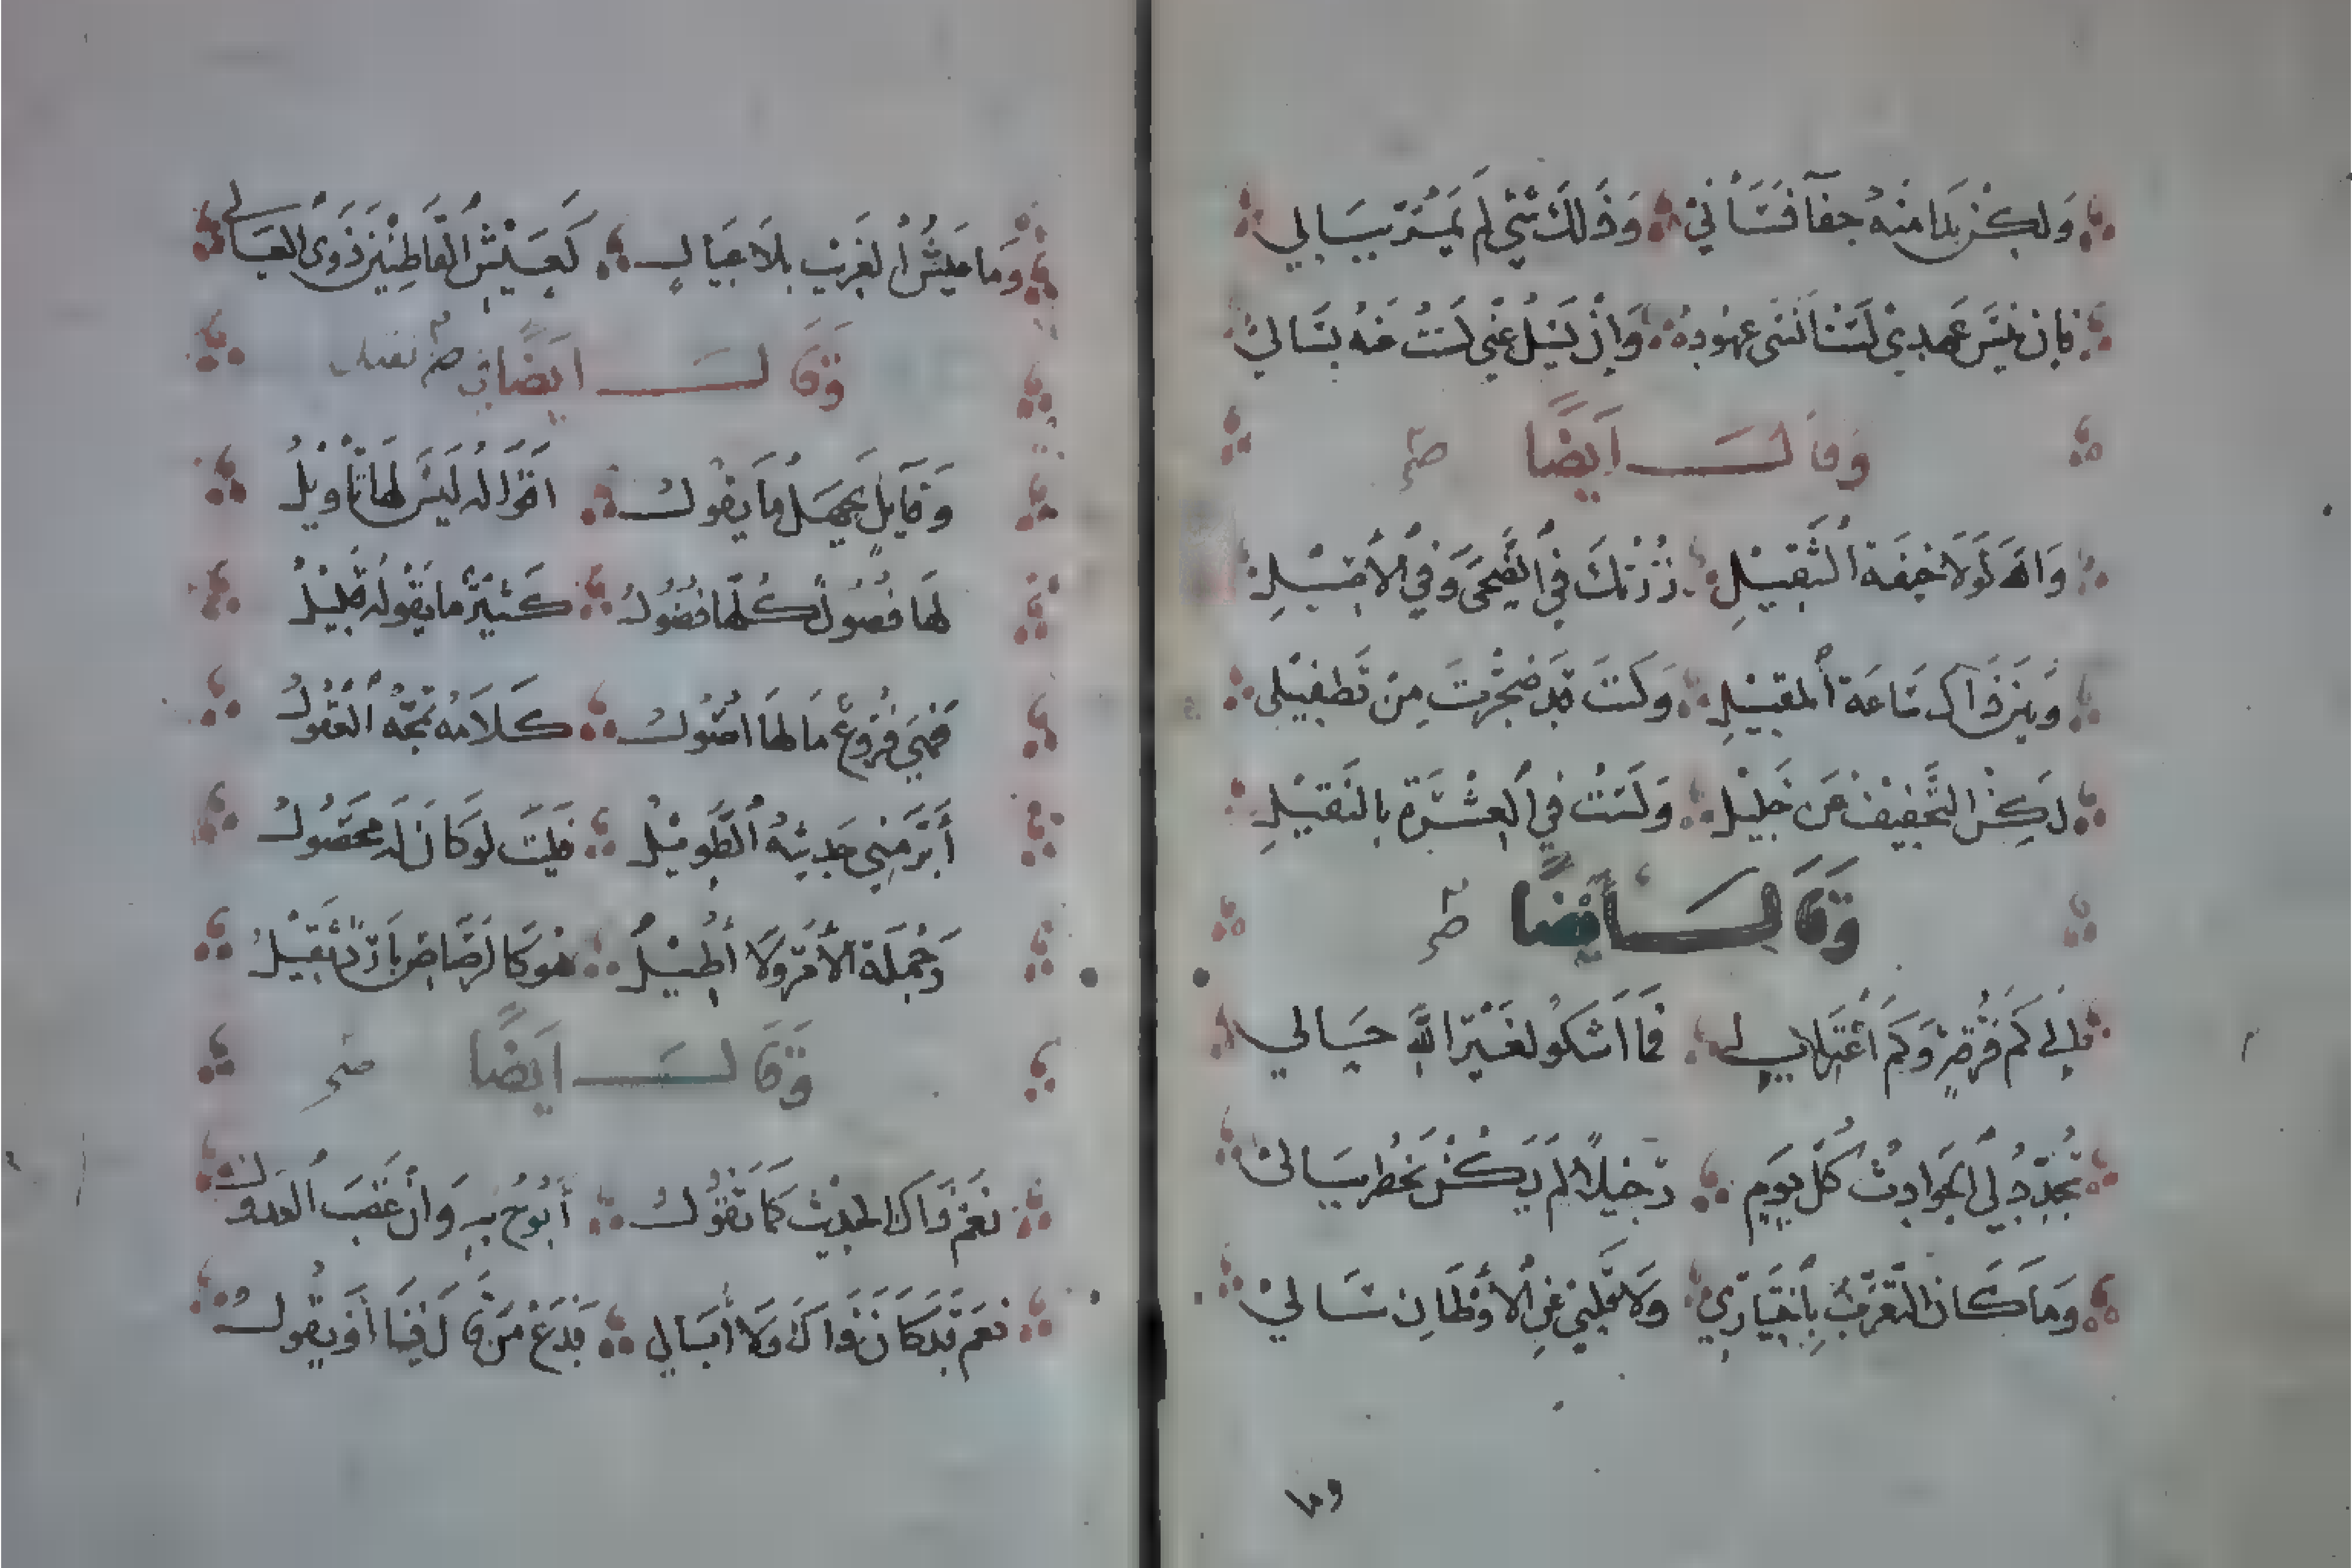 وَلَكِنْ بَدَا مِنْهُ جَفَآ فَسَآنِي وَذَلِكَ شَيْءٌ لَمْ يَمُرَّ بِبَالِي
فَإِنْ يَنْسَ عَهْدِي لَسْتُ أَنْسَى عُهُودَهُ وَإِنْ يَسْلُ عَنِّي لَسْتُ عَنْهُ بِسَالِي
وَقَالَ أَيْضًا
وَاللهِ لَوْلَا خِيفَةُ التَّثْقِيلِ زُرْتُكَ فِي الضُّحَى وَفِي الْأَصِيلِ
وَبَيْنَ ذَاكَ سَاعَةَ الْمَقِيلِ وَكُنْتَ قَدْ ضَجِرْتَ مِنْ تَطْفِيلِي
لَكِنْ التَّخْفِيفُ عَنْ خَلِيلِ وَلَسْتُ فِي الْعِشْرَةِ بِالثَّقِيلِ
وَقَالَ أَيْضًا
إِلَى كَمْ فُرْقَةٌ وَكَمْ فَمَا أَشْكُو لِغَيْرِ اللهِ حَالِي
تُجَدِّدُ لِي الْحَوَادِثُ كُلَّ يَوْمٍ رَحِيلًا لَمْ يَكُنْ يَخْطُرْ بِبَالِي
وَمَا كَانَ التَّغَرُّبُ بِاخْتِيَارِي وَلَا قَلْبِي عَنِ الْأَوْطَانِ سَالِي
وما
وَمَا عَيْشُ الْغَرِيبِ بِلَا عِيَالٍ كَعَيْشِ الْقَاطِنِينَ ذَوِي الْعِيَالِ
وَقَالَ أَيْضًا فِي ثقيل
وَقَايِلٍ يَجْهَلُ مَا يَقُولُ أَقْوَالُهُ لَيْسَ لَهَا تَأْوِيلُ
لَهَا فُصُولٌ كُلُّهَا فُضُولُ كَثِيرُ مَا يَقُولُهُ قَلِيلُ
فَهْيَ فُرُوعٌ مَا لَهَا أُصُولُ كَلَامُهُ تَمُجُّهُ الْعُقُولُ
أَبْرَمَنِي حَدِيثُهُ الطَّوِيلُ فَلَيْتَ لَوْ كَانَ لَهُ مَحْصُولُ
وَجُمْلَةُ الْأَمْرِ وَلَا أُطِيلُ هُوَ كَالرَّصَاصِ بَارِدٌ ثَقِيلُ
وَقَالَ أَيْضًا
نَعَمْ ذَاكَ الْحَدِيثُ كَمَا تَقُولُ أَبُوحُ بِهِ وَإِنْ غَضِبَ الْعَذُولُ
نَعَمْ قَدْ كَانَ ذَاكَ وَلَا أُبَالِي فَدَعْ مَنْ قَالَ فِينَا أَوْ يَقُولُ